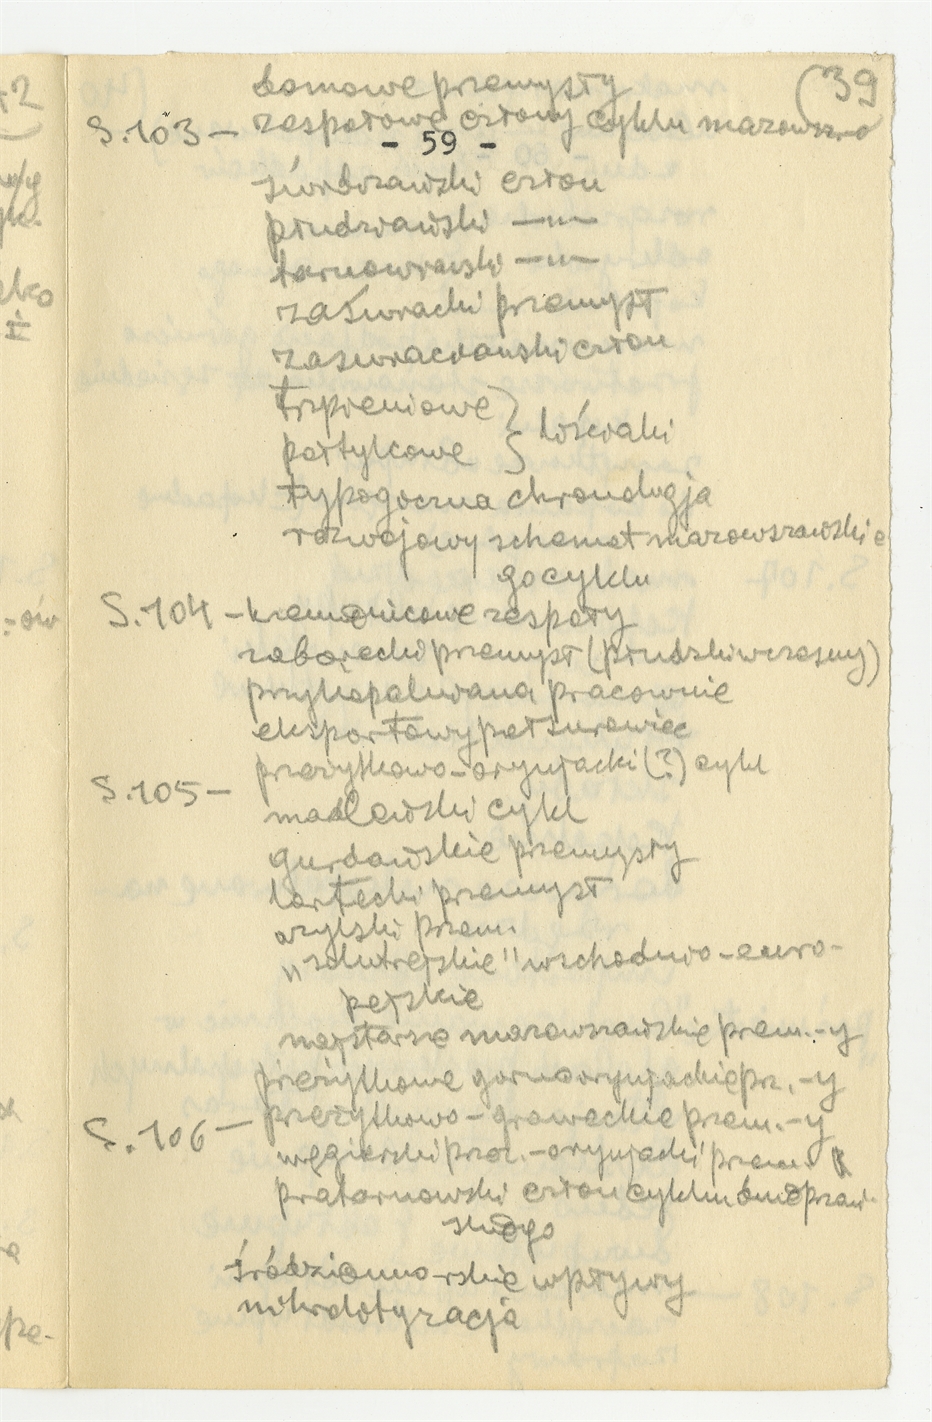 domowe przemysły (39
S.103 – zespołowe człony cyklu mazowsza
- 59 -
świdrzawski człon
płudziawski —"—
tarnowiawski —"—
zaświacki przemysł
zaświaciański człon
trzpieniowe } liściaki
portylcowe
typogoczna chronologja
rozwojowy schemat mazowszawskie
go cyklu
S.104 – krzemienicowe zespoły
zaborecki przemysł (płudzkiwczesny)
przykopalniana pracownie
eksportowy półsurowiec
S.105 – przeżytkowo-oryniacki (?) cykl
cykl
gurdawskie przemysły
przemysł
azylski przem.
„solutrejskie" wschodnio-euro-
pejskie
najstarsze mazowszawskie przem.-y
przeżytkowe górnooryniackie prz.-y
S.106 – przeżytkowo-graweckie przem.-y
węgierski prze.-oryniacki przem.
pratarnowski człon cyklu
skiego
śródziemno-rskie wpływy
mikrolityzacja